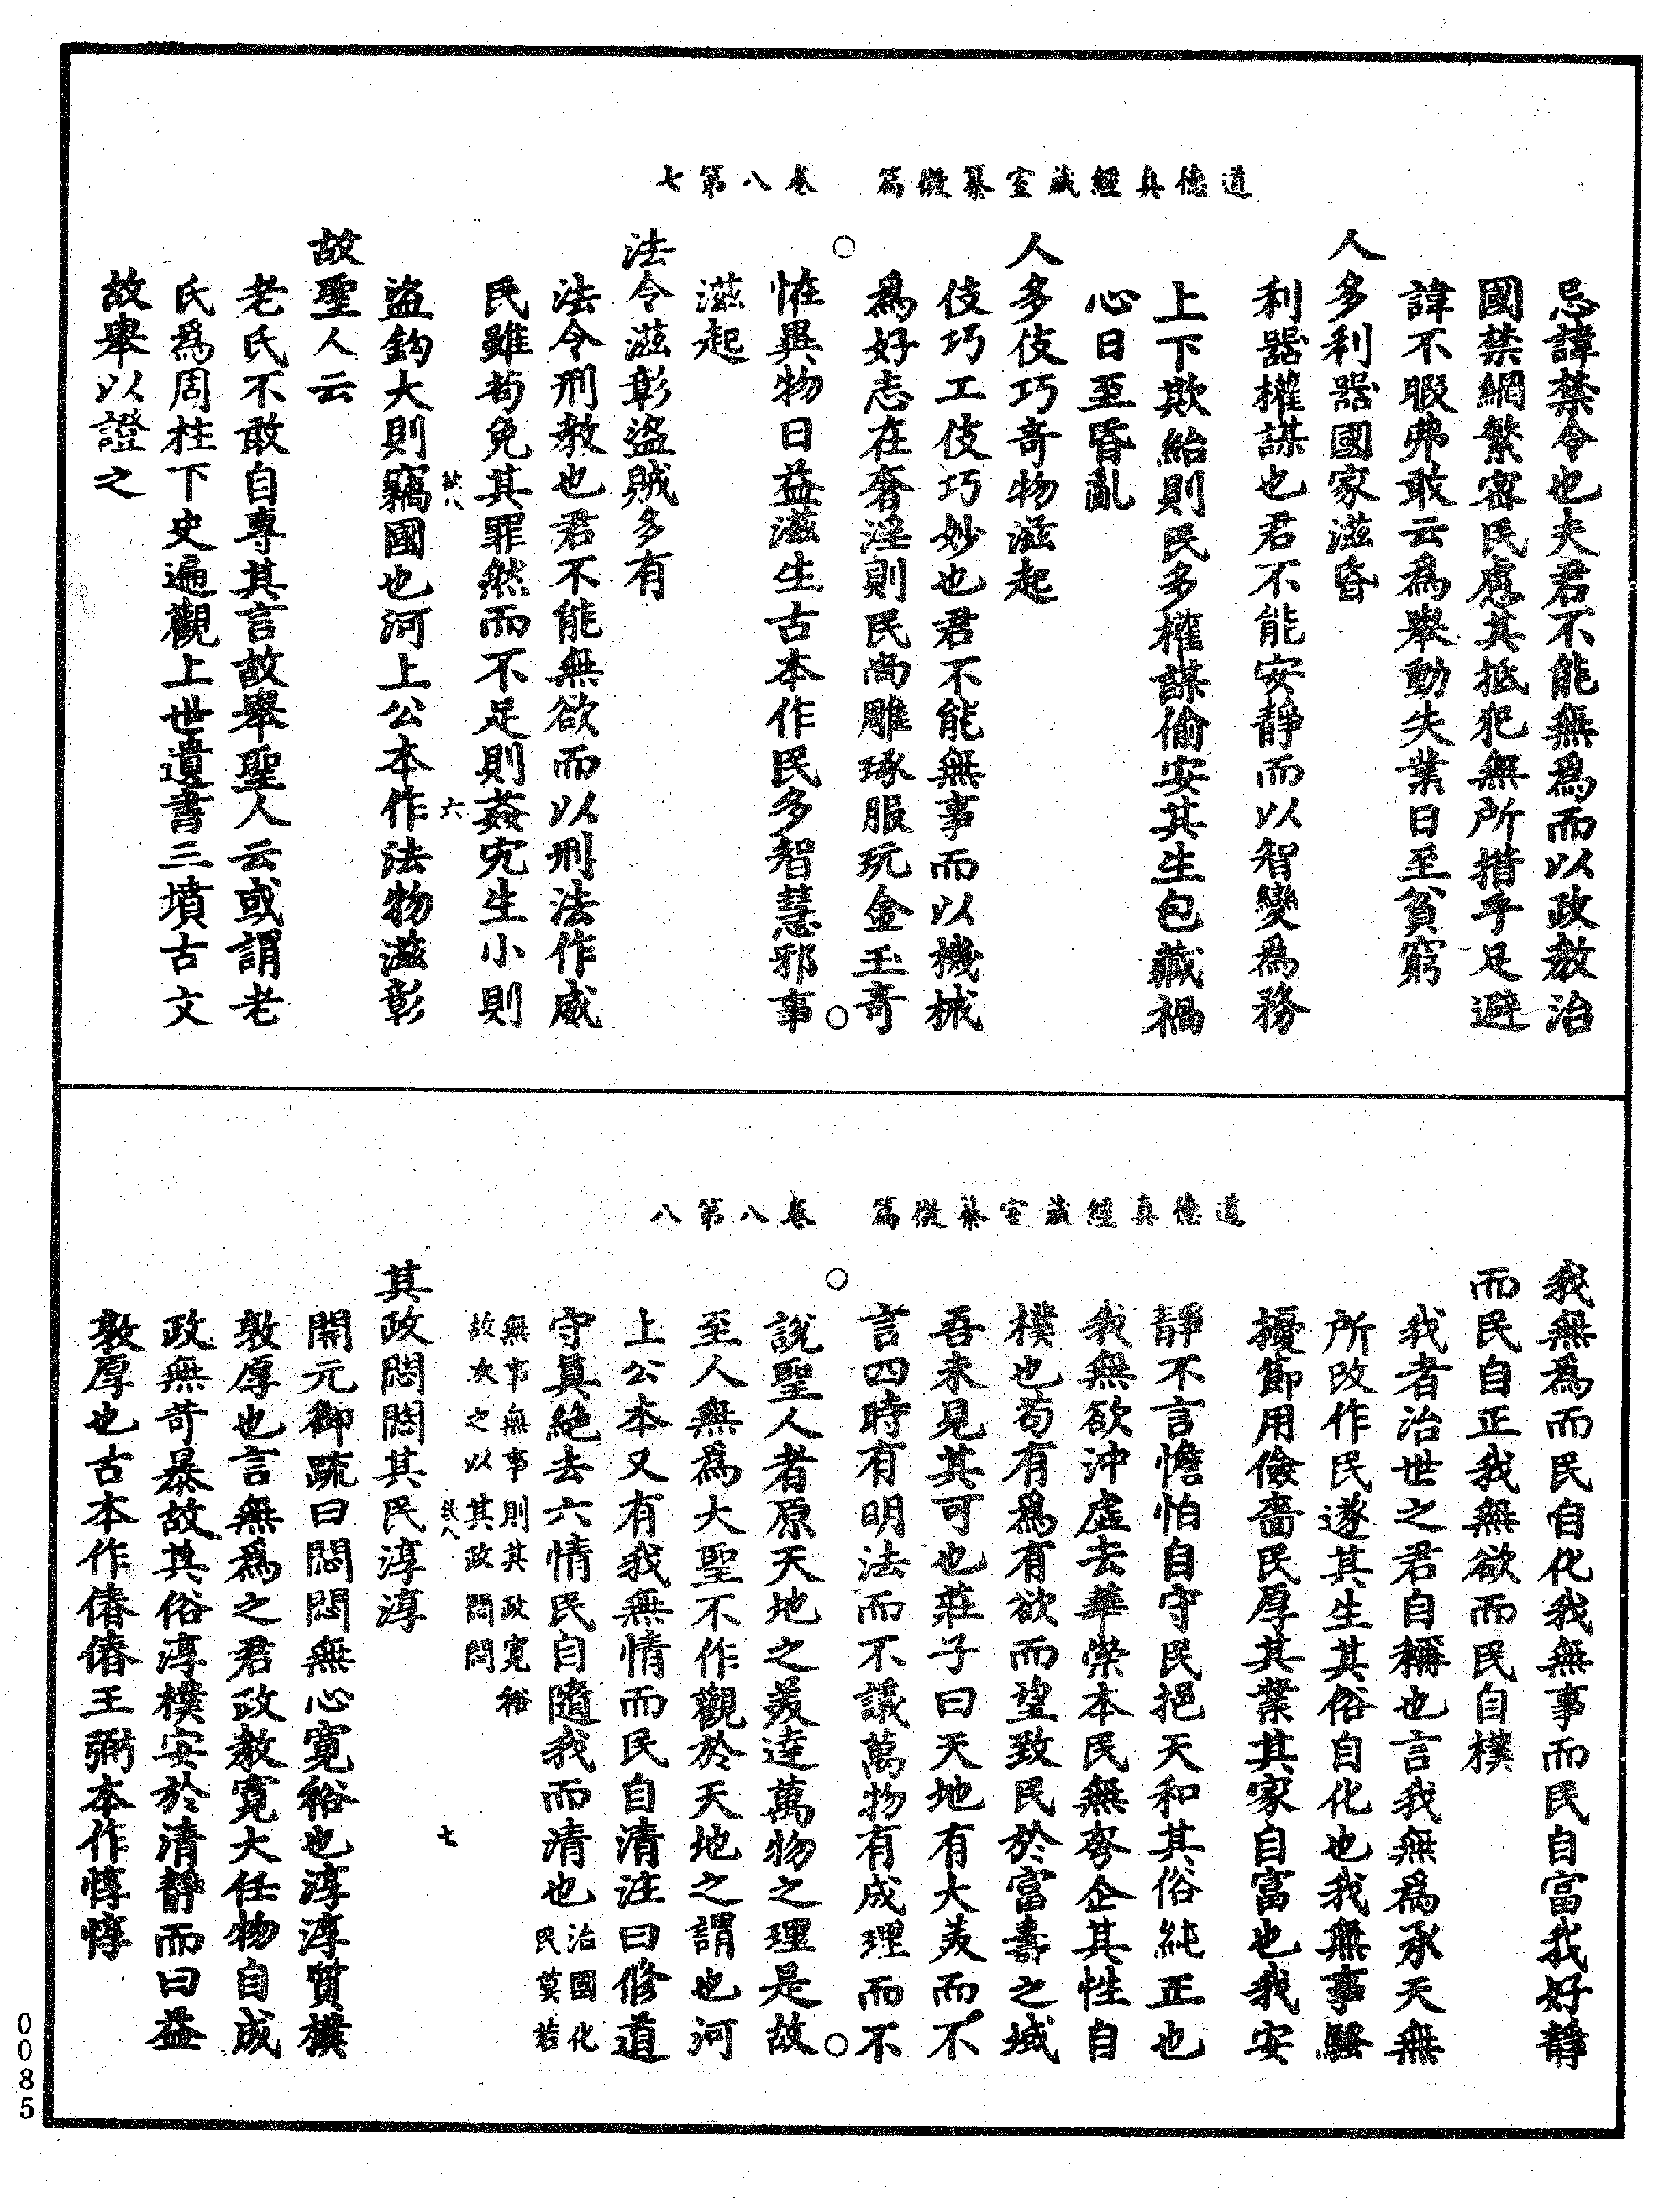 道德真經藏室纂微篇　卷八第七
忌諱禁令也夫君不能無為而以政教治
國禁網繁密民慮其抵犯無所措手足避
諱不暇弗敢云為舉動失業日至貧窮
人多利器國家滋昏
利器權謀也君不能安靜而以智變為務
上下欺紿則民多權謀偷安其生包藏禍
心日至昏亂
人多伎巧奇物滋起
伎巧工伎巧妙也君不能無事而以機械
為好志在奢淫則民尚雕琢服玩金玉奇
恠異物日益滋生古本作民多智慧邪事
滋起
法令滋彰盜賊多有
法令刑教也君不能無欲而以刑法作威
民雖苟免其罪然而不足則姦宄生小則
六
盜鈎大則竊國也河上公本作法物滋彰
故聖人云
老氏不敢自專其言故舉聖人云或謂老
氏為周柱下史遍觀上世遺書三墳古文
故舉以證之
道德真經藏室纂微篇　卷八第八
我無為而民自化我無事而民自富我好靜
而民自正我無欲而民自樸
我者治世之君自稱也言我無為承天無
所改作民遂其生其俗自化也我無事騷
擾節用儉嗇民厚其業其家自富也我安
靜不言憺怕自守民挹天和其俗純正也
我無欲沖虛去華崇本民無夸企其性自
樸也苟有為有欲而望致民於富壽之域
吾未見其可也莊子曰天地有大美而不
言四時有明法而不議萬物有成理而不
說聖人者原天地之美達萬物之理是故
至人無為大聖不作觀於天地之謂也河
上公本又有我無情而民自清注曰修道
守真絕去六情民自隨我而清也治國化
民莫若
無事無事則其政寬裕
故次之以其政悶悶
七
其政悶悶其民淳淳
開元御疏曰悶悶無心寬裕也淳淳質樸
敦厚也言無為之君政教寬大任物自成
政無苛暴故其俗淳樸安於清靜而曰益
敦厚也古本作偆偆王弼本作惇惇
0085